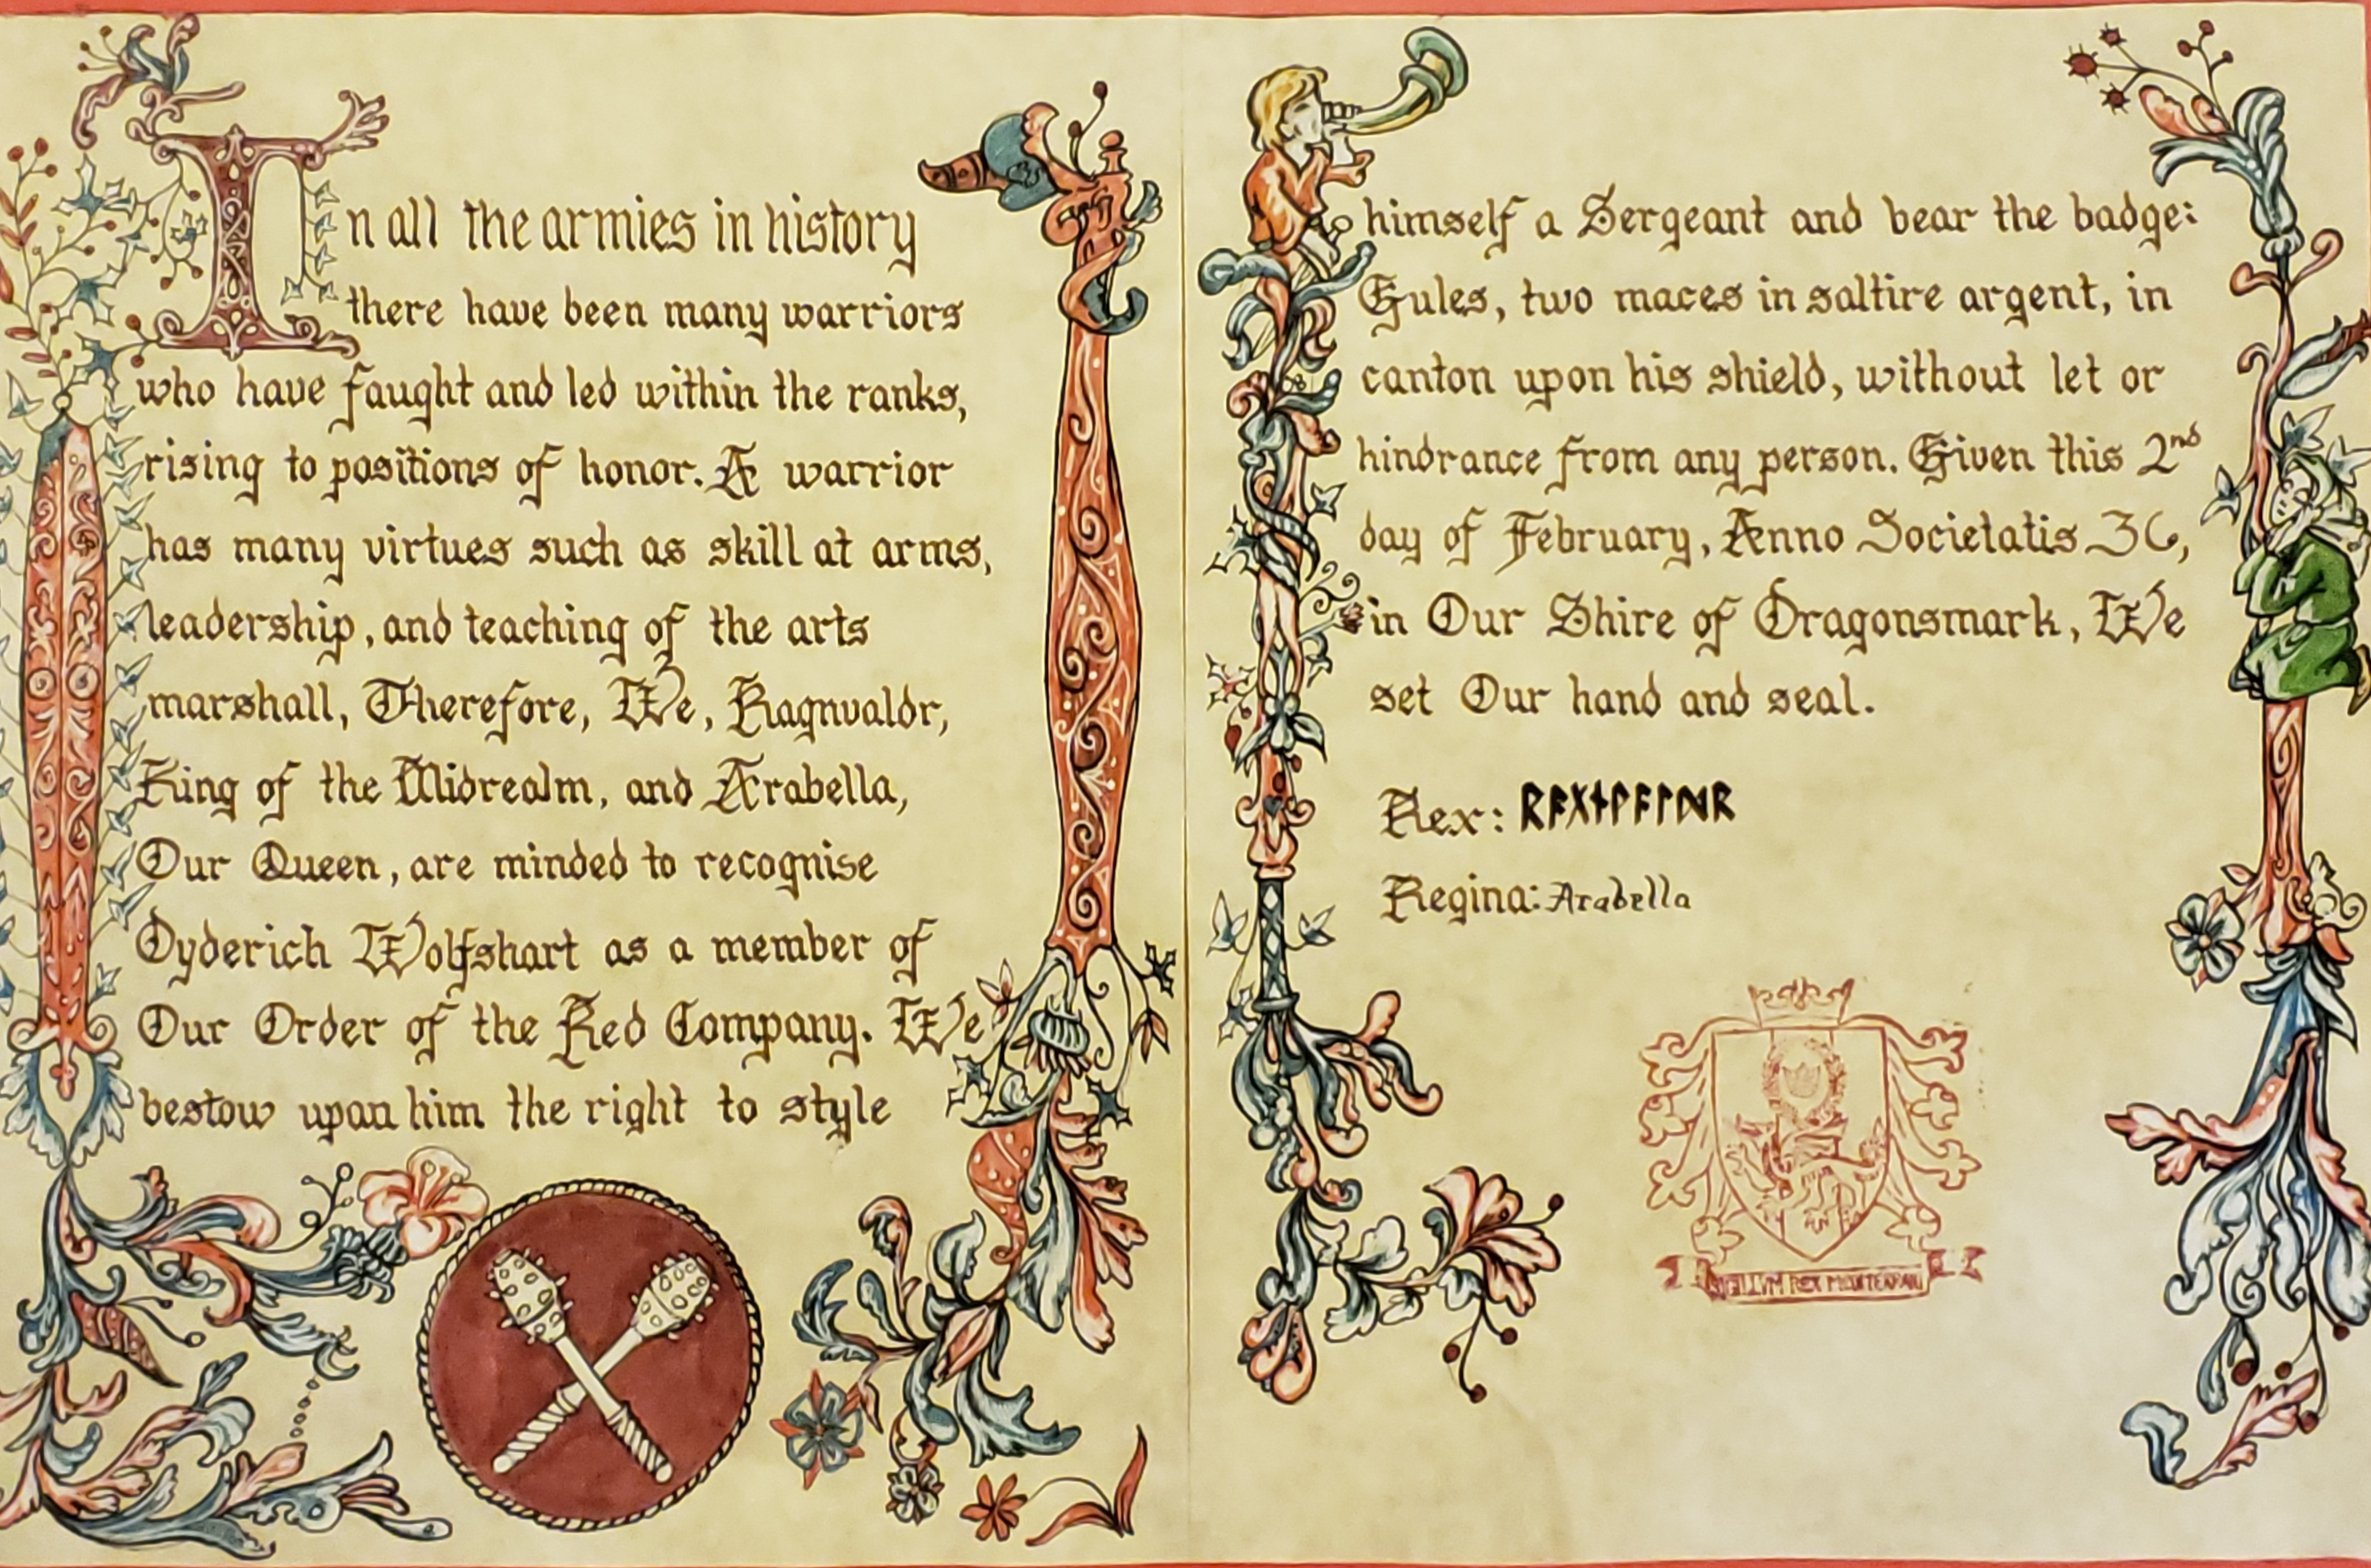 In all the armies in history
there have been many warriors
who have faught and led within the ranks,
rising to positions of honor. A warrior
has many virtues such as skill at arms,
leadership, and teaching of the arts
marshall, Therefore, We, Ragnvaldr,
King of the Midrealm, and Arabella,
Our Queen, are minded to recognise
Dyderich Wolfshart as a member of
Our Order of the Red Company. We
bestow upan him the right to style
himself a Sergeant and bear the badge:
Gules, two maces in saltire argent, in
canton upon his shield, without let or
hindrance from any person. Given this 2nd
day of February, Anno Societatis 36,
in Our Shire of Dragonsmark, We
set Our hand and seal.
Rex: ᚱᚨᚷᚾᚹᚨᛚᛞᚱ
Regina: Arabella
SIGILLVM REX